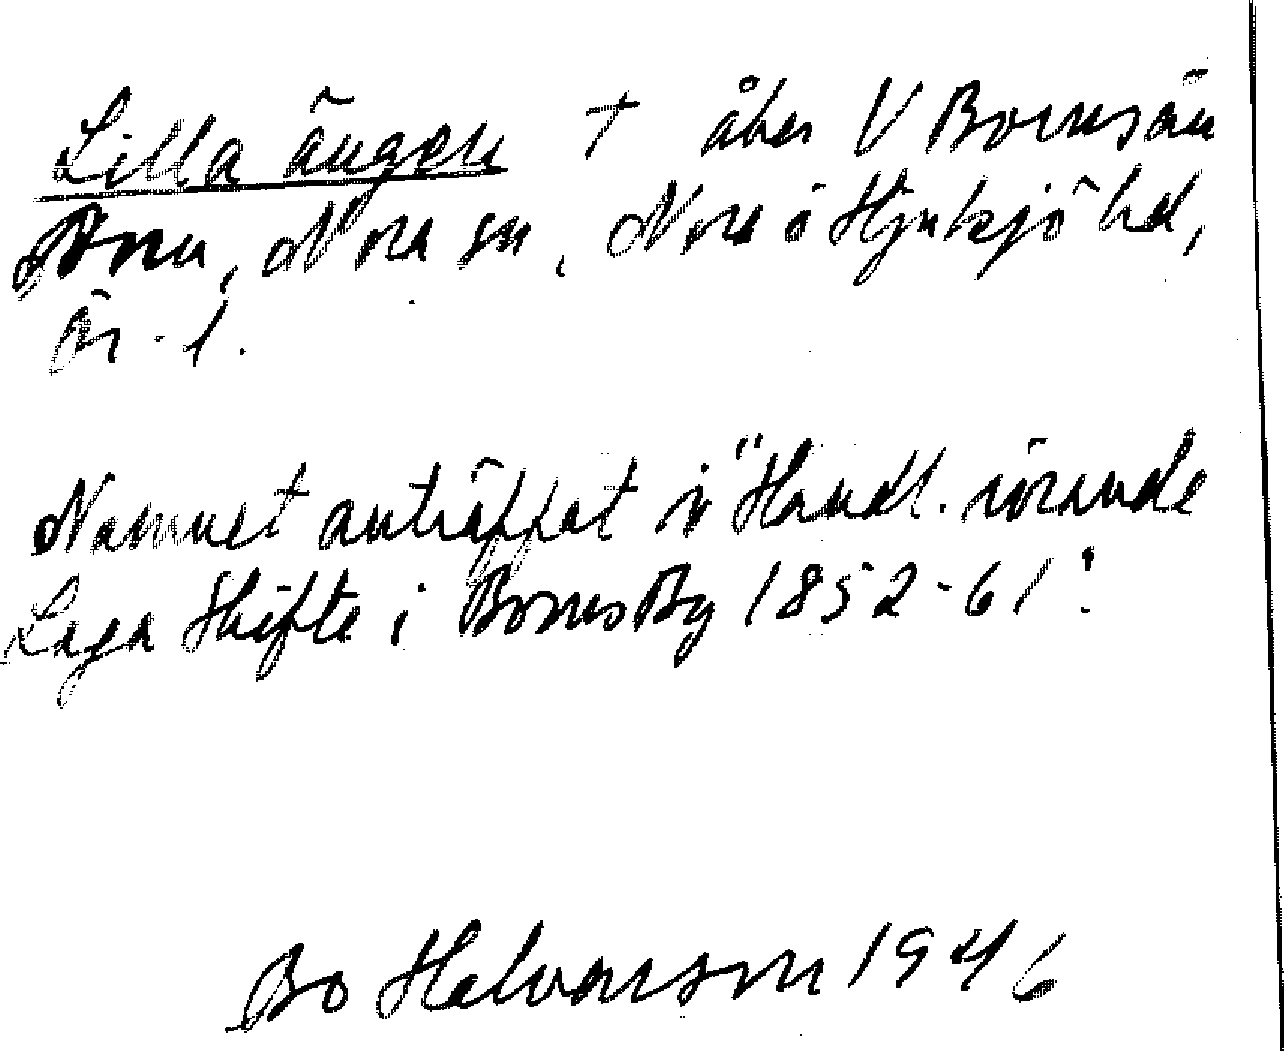 Lilla ängen † åker V Bornsån
Born, Nora sn, Nora o Hjulsjö hd,
Ör. l.
Namnet anträffat i "Handl. rörande
Laga Skifte i Borns By 1852-61".
Bo Halvarson 1946